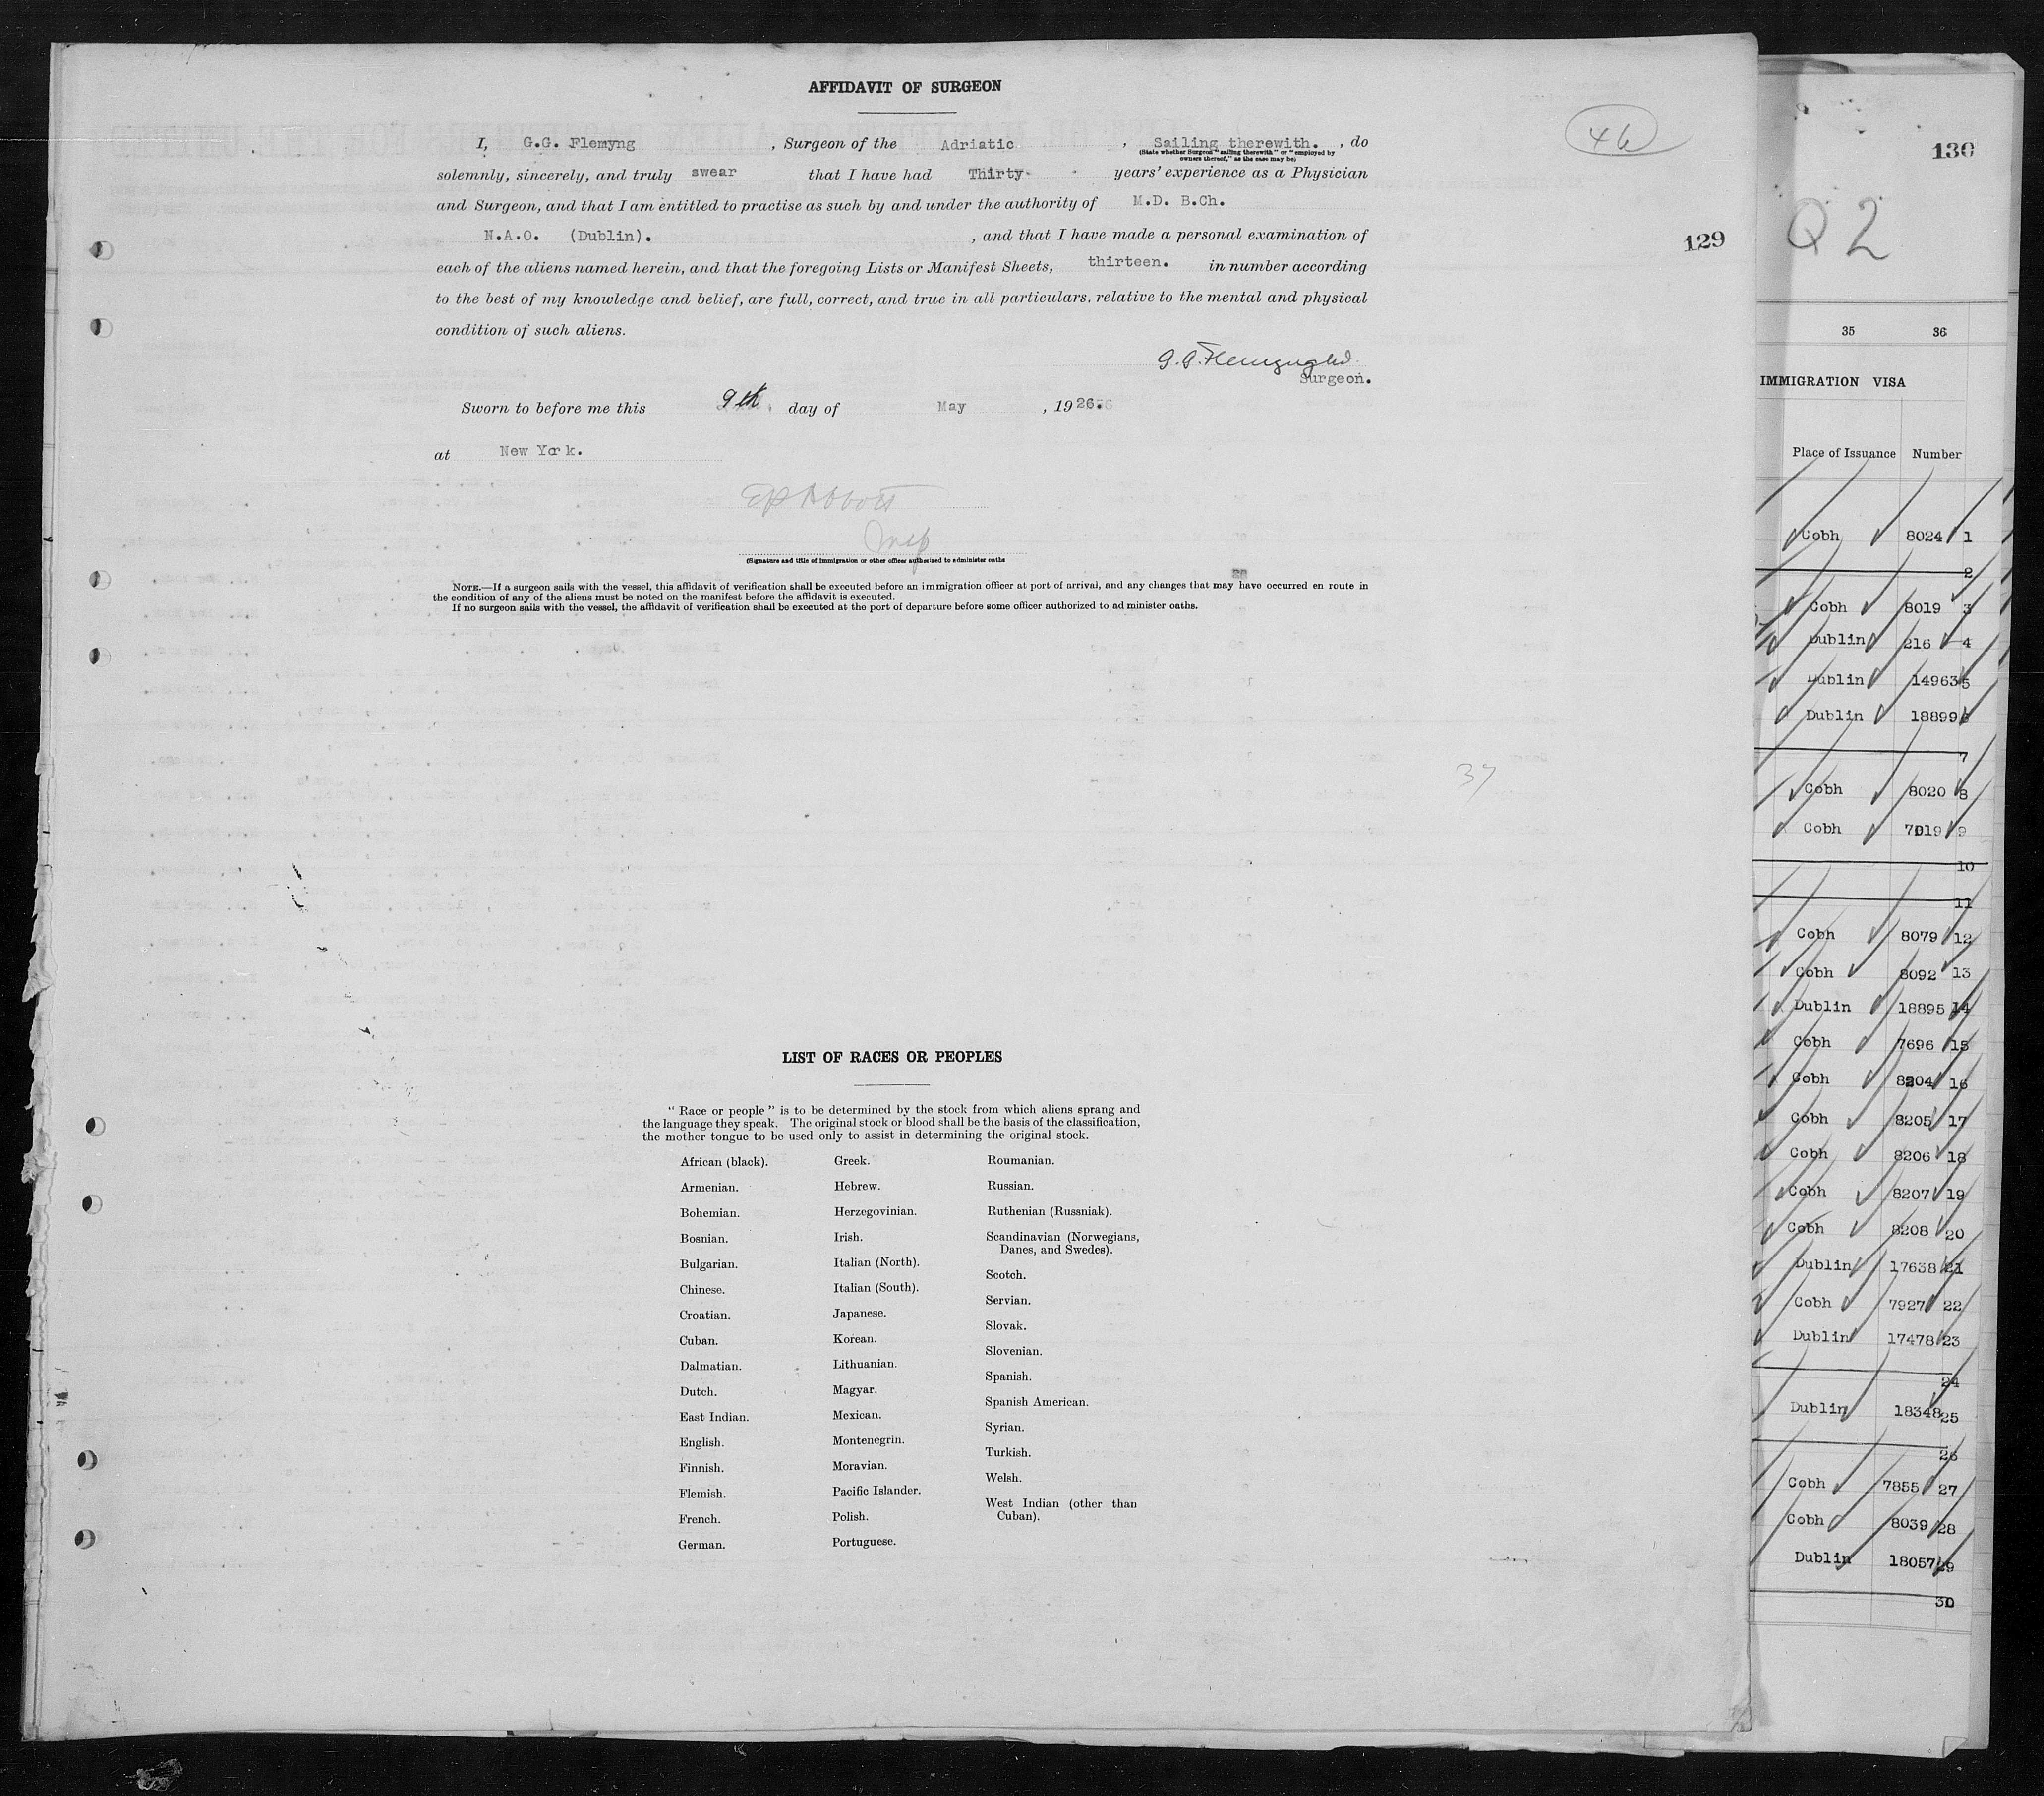 AFFIDAVIT OF SURGEON
I, G.G. Flemyng, Surgeon of the Adriatic, Sailing therewith., do
(State whether Surgeon "sailing therewith" or "employed by
owners thereof," as the case may be)
solemnly, sincerely, and truly swear that I have had Thirty years' experience as a Physician
and Surgeon, and that I am entitled to practise as such by and under the authority of M.D. B.Ch.
N.A.O. (Dublin). , and that I have made a personal examination of
each of the aliens named herein, and that the foregoing Lists or Manifest Sheets, thirteen. in number according
to the best of my knowledge and belief, are full, correct, and true in all particulars, relative to the mental and physical
condition of such aliens.
Surgeon.
Sworn to before me this 9th day of May, 1926.
at New York.
EP Abbott
Insp
(Signature and title of immigration or other officer authorized to administer oaths
NOTE.—If a surgeon sails with the vessel, this affidavit of verification shall be executed before an immigration officer at port of arrival, and any changes that may have occurred en route in
the condition of any of the aliens must be noted on the manifest before the affidavit is executed.
If no surgeon sails with the vessel, the affidavit of verification shall be executed at the port of departure before some officer authorized to administer oaths.
46
129
37
LIST OF RACES OR PEOPLES
"Race or people" is to be determined by the stock from which aliens sprang and
the language they speak. The original stock or blood shall be the basis of the classification,
the mother tongue to be used only to assist in determining the original stock.
African (black).
Armenian.
Bohemian.
Bosnian.
Bulgarian.
Chinese.
Croatian.
Cuban.
Dalmatian.
Dutch.
East Indian.
English.
Finnish.
Flemish.
French.
German.
Greek.
Hebrew.
Herzegovinian.
Irish.
Italian (North).
Italian (South).
Japanese.
Korean.
Lithuanian.
Magyar.
Mexican.
Montenegrin.
Moravian.
Pacific Islander.
Polish.
Portuguese.
Roumanian.
Russian.
Ruthenian (Russniak).
Scandinavian (Norwegians,
Danes, and Swedes).
Scotch.
Servian.
Slovak.
Slovenian.
Spanish.
Spanish American.
Syrian.
Turkish.
Welsh.
West Indian (other than
Cuban).
130
Q2
35 36
IMMIGRATION VISA
Place of Issuance Number
Cobh 8024 1
2
Cobh 8019 3
Dublin 216 4
Dublin 14963 5
Dublin 18899 6
7
Cobh 8020 8
Cobh 7019 9
10
11
Cobh 8079 12
Cobh 8092 13
Dublin 18895 14
Cobh 7696 15
Cobh 8204 16
Cobh 8205 17
Cobh 8206 18
Cobh 8207 19
Cobh 8208 20
Dublin 17638 21
Cobh 7927 22
Dublin 17478 23
24
Dublin 18348 25
26
Cobh 7855 27
Cobh 8039 28
Dublin 18057 29
30